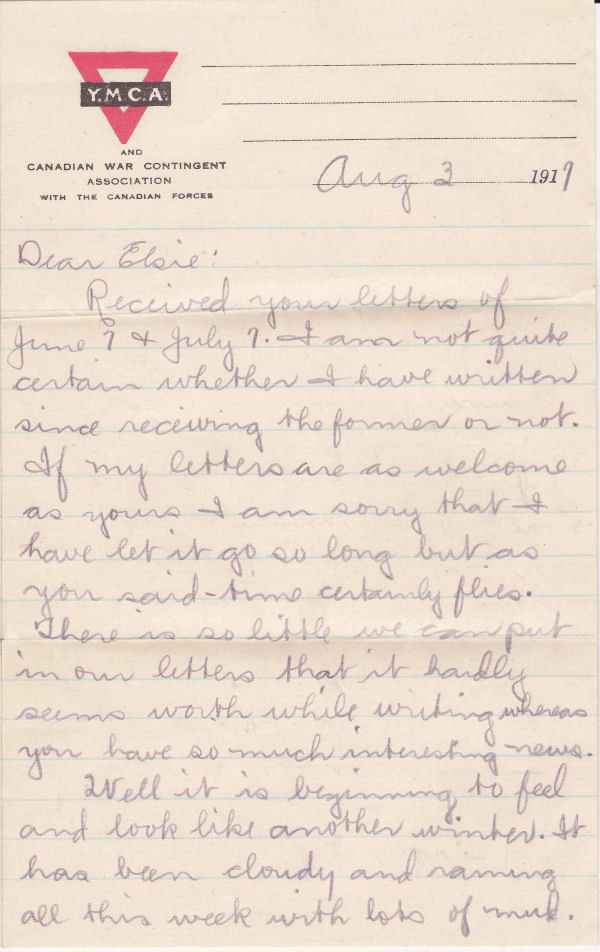 Y.M.C.A.
AND
CANADIAN WAR CONTINGENT
ASSOCIATION
WITH THE CANADIAN FORCES
Aug 3 1917
Dear Elsie:
Received your letters of
June 7 & July 7. I am not quite
certain whether I have written
since receiving the former or not.
If my letters are as welcome
as yours I am sorry that I
have let it go so long but as
you said - time certainly flies.
There is so little we can put
in our letters that it hardly
seems worth while writing whereas
you have so much interesting news.
Well it is beginning to feel
and look like another winter. It
has been cloudy and raining
all this week with lots of mud.